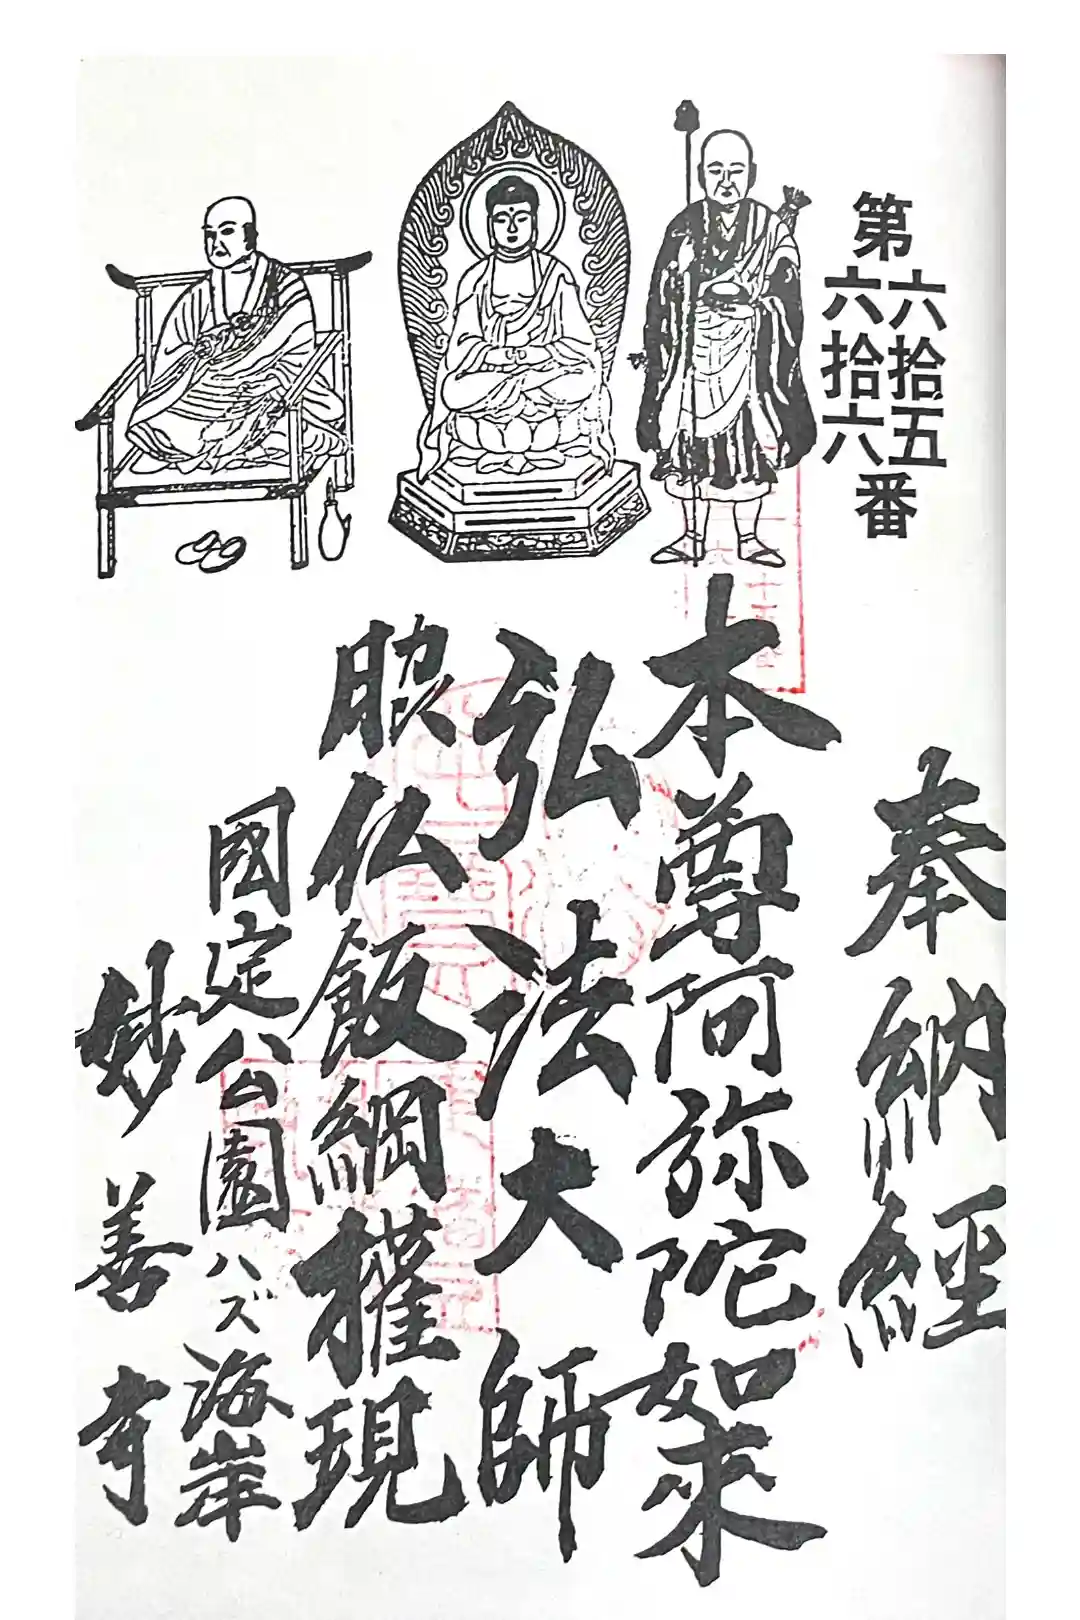 第
六拾五
六拾六
番
奉納経
本尊阿弥陀如来
弘法大師
脇仏飯綱権現
國定公園ハズ海岸
妙善寺